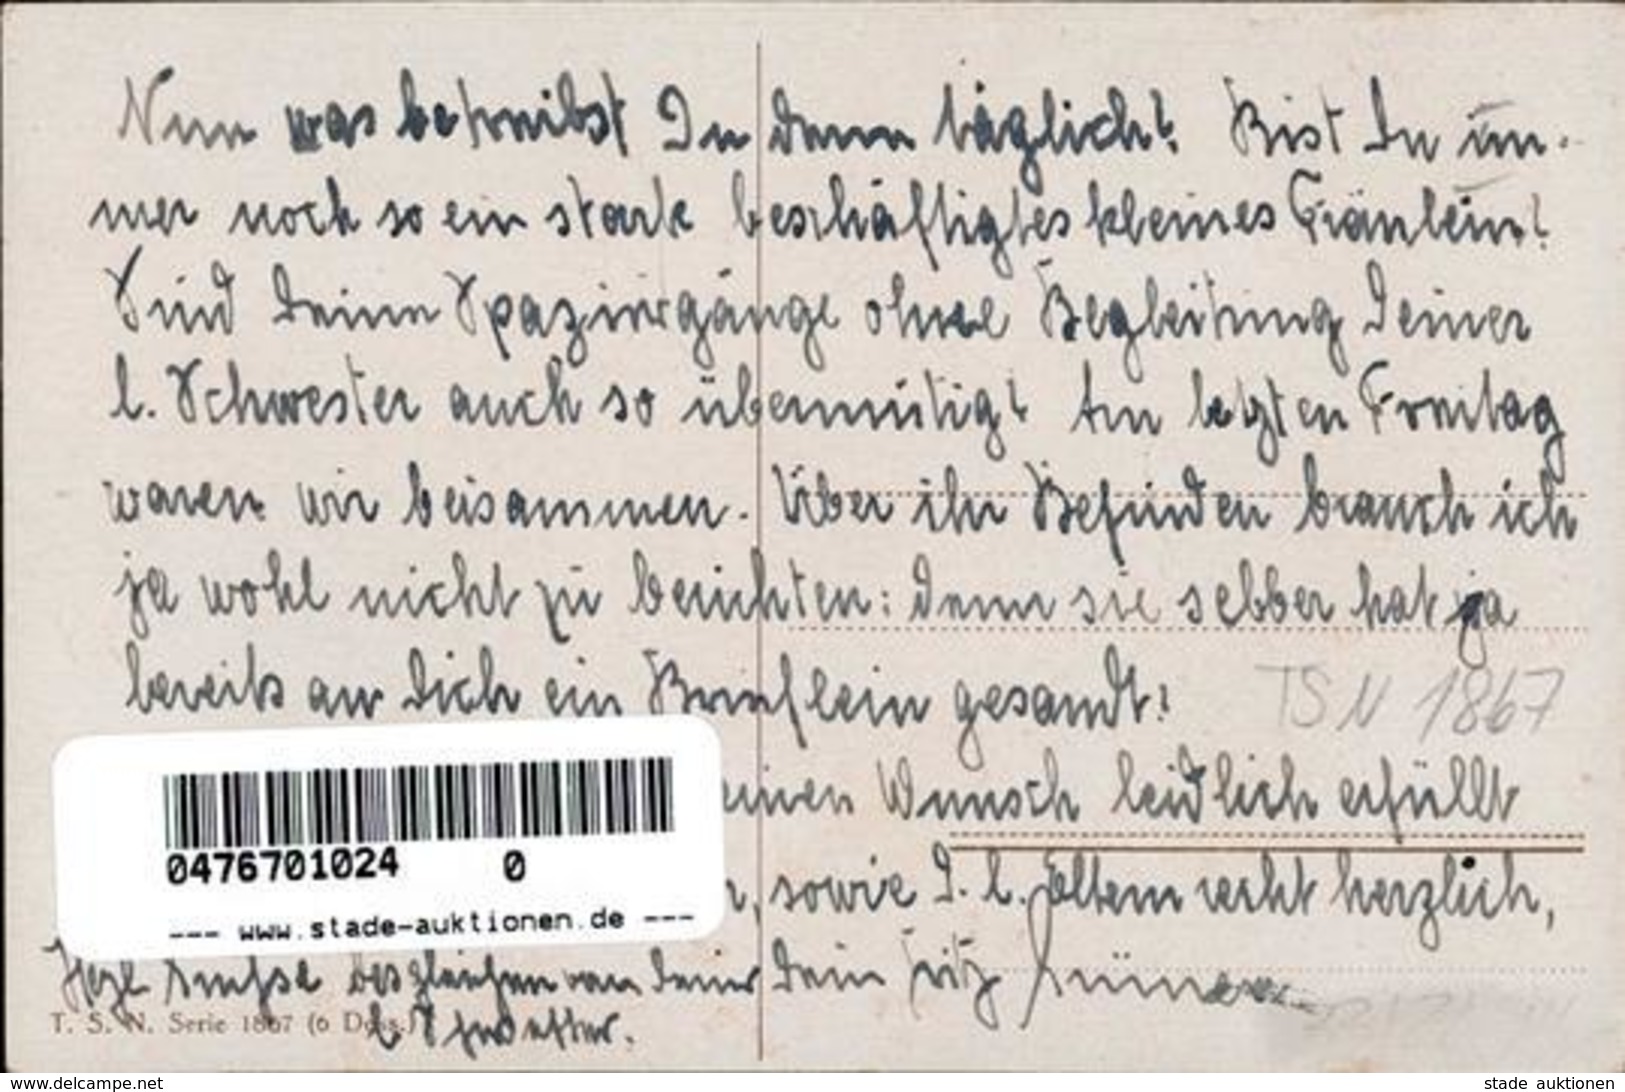 Nun was betreibst Du denn täglich? Bist Du im-
mer noch so ein stark beschäftigtes kleines Fräulein?
Sind Deine Spaziergänge ohne Begleitung Deiner
l. Schwester auch so übermütig? Am letzten Freitag
waren wir beisammen. Über ihr Befinden brauch ich
ja wohl nicht zu berichten: denn sie selber hat ja
bereits an Dich ein Brieflein gesandt!
TSN 1867
einen Wunsch leidlich erfüllt
0476701024 0
, sowie D. l. Eltern recht herzlich,
--- www.stade-auktionen.de ---
Dein Fritz
Herzl. Grüsse desgleichen von Deiner
l. Schwester.
T. S. N. Serie 1867 (6 Dess.)
www.delcampe.net
stade auktionen